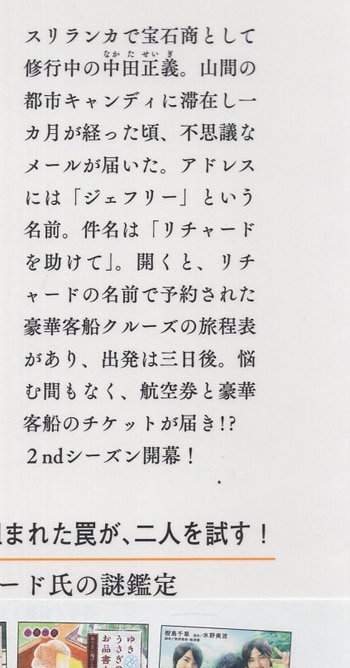 スリランカで宝石商として
修行中の中田正義。山間の
都市キャンディに滞在し一
カ月が経った頃、不思議な
メールが届いた。アドレス
には「ジェフリー」という
名前。件名は「リチャード
を助けて」。開くと、リチ
ャードの名前で予約された
豪華客船クルーズの旅程表
があり、出発は三日後。悩
む間もなく、航空券と豪華
客船のチケットが届き!?
2ndシーズン開幕!
まれた罠が、二人を試す!
ード氏の謎鑑定
樹島千草
水野美波
ゆき
うさぎの
お品書き